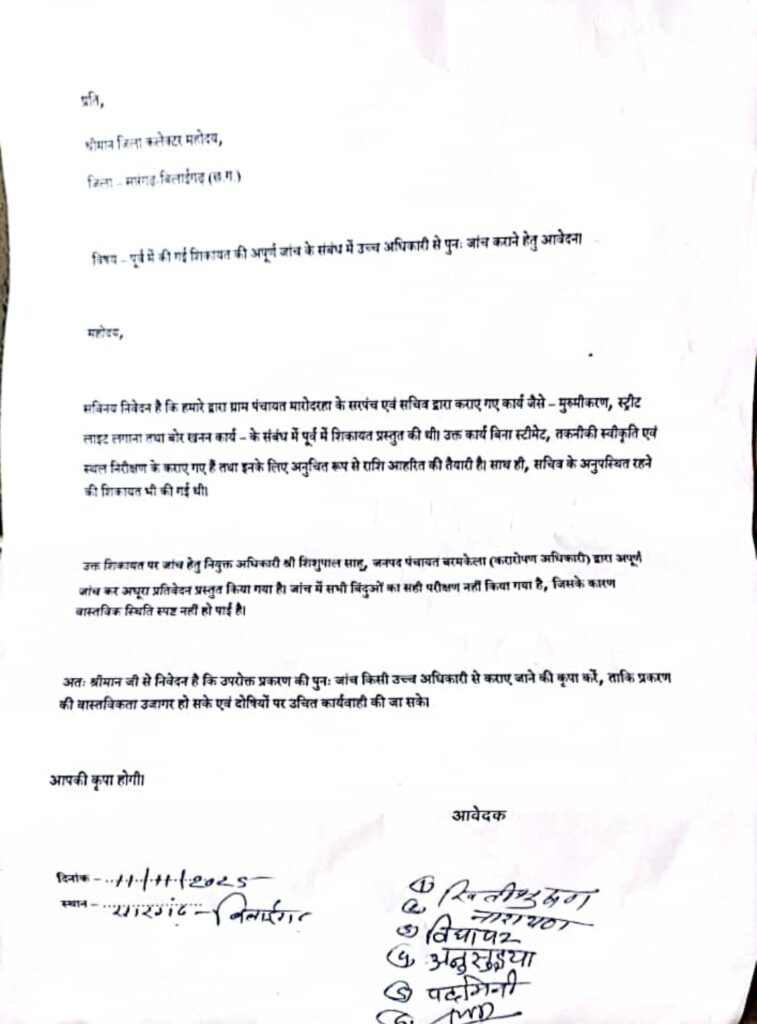 प्रति,
श्रीमान जिला कलेक्टर महोदय,
जिला – सारंगढ़-बिलाईगढ़ (छ.ग.)
विषय – पूर्व में की गई शिकायत की अपूर्ण जांच के संबंध में उच्च अधिकारी से पुनः जांच कराने हेतु आवेदन।
महोदय,
सविनय निवेदन है कि हमारे द्वारा ग्राम पंचायत मारोदरहा के सरपंच एवं सचिव द्वारा कराए गए कार्य जैसे – मुरुमीकरण, स्ट्रीट
लाइट लगाना तथा बोर खनन कार्य – के संबंध में पूर्व में शिकायत प्रस्तुत की थी। उक्त कार्य बिना स्टीमेट, तकनीकी स्वीकृति एवं
स्थल निरीक्षण के कराए गए हैं तथा इनके लिए अनुचित रूप से राशि आहरित की तैयारी है। साथ ही, सचिव के अनुपस्थित रहने
की शिकायत भी की गई थी।
उक्त शिकायत पर जांच हेतु नियुक्त अधिकारी श्री शिशुपाल साहू, जनपद पंचायत बरमकेला (करारोपण अधिकारी) द्वारा अपूर्ण
जांच कर अधूरा प्रतिवेदन प्रस्तुत किया गया है। जांच में सभी बिंदुओं का सही परीक्षण नहीं किया गया है, जिसके कारण
वास्तविक स्थिति स्पष्ट नहीं हो पाई है।
अतः श्रीमान जी से निवेदन है कि उपरोक्त प्रकरण की पुनः जांच किसी उच्च अधिकारी से कराए जाने की कृपा करें, ताकि प्रकरण
की वास्तविकता उजागर हो सके एवं दोषियों पर उचित कार्यवाही की जा सके।
आपकी कृपा होगी।
आवेदक
दिनांक – 11/11/2025
स्थान – सारंगढ़ – बिलाईगढ़
①
② नारायण
③ विद्याधर
④ अनुसुइया
⑤ पदमिनी
⑥